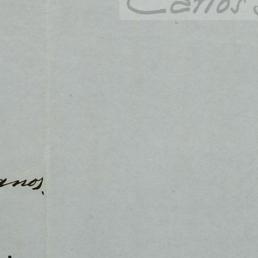 Carlos
anos,